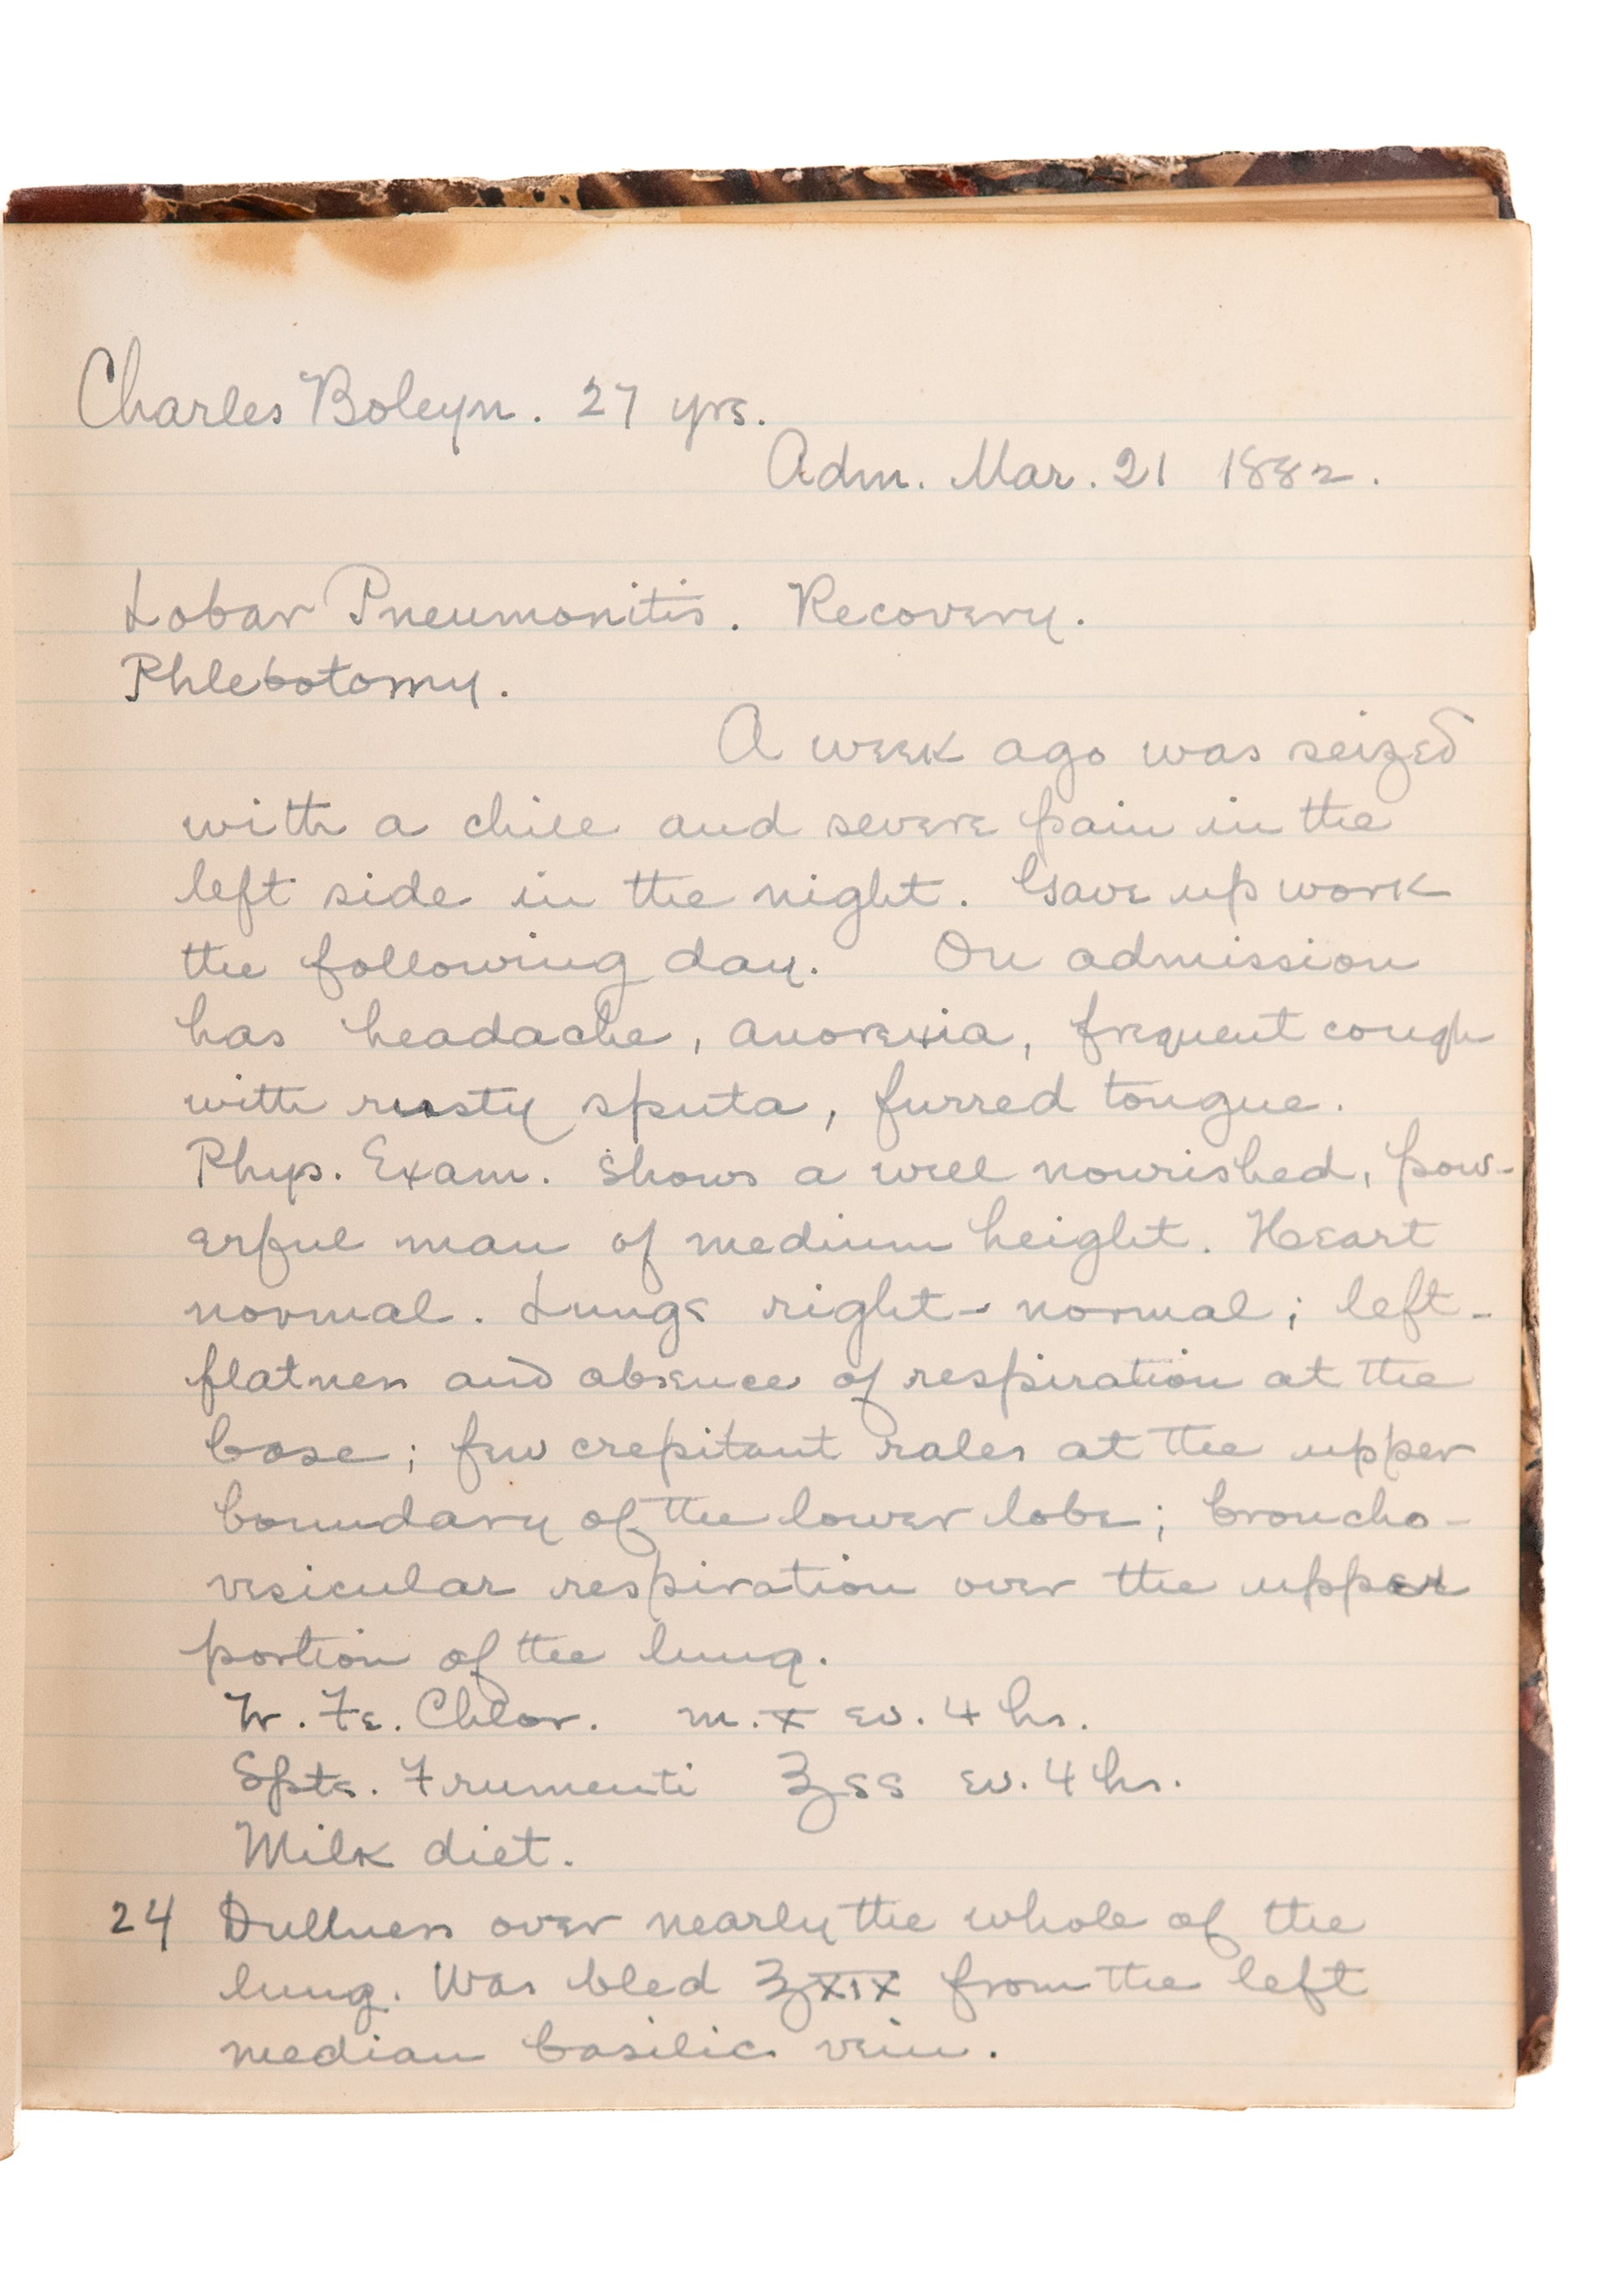 Charles Boleyn. 27 yrs.
Adm. Mar. 21 1882.
Lobar Pneumonitis. Recovery.
Phlebotomy.
A week ago was seized
with a chill and severe pain in the
left side in the night. Gave up work
the following day. On admission
has headache, anorexia, frequent cough
with rusty sputa, furred tongue.
Phys. Exam. shows a well nourished, pow-
erful man of medium height. Heart
normal. Lungs right - normal; left -
flatness and absence of respiration at the
base; few crepitant rales at the upper
boundary of the lower lobe; broncho-
vesicular respiration over the upper
portion of the lung.
Tr. Fe. Chlor. m. x ev. 4 hs.
Spts. Frumenti ℥ss ev. 4 hs.
Milk diet.
24 Dullness over nearly the whole of the
lung. Was bled ℥xix from the left
median basilic vein.